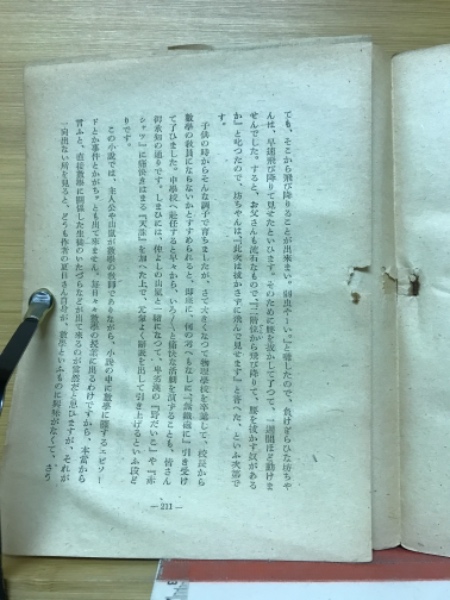 ても、そこから飛び降りることが出來まい。弱虫やーい。』と囃したので、負けぎらひな坊ちや
んは、早速飛び降りて見せたといひます。そのために腰を抜かして了つて、一週間ほど動けま
せんでした。すると、お父さんも流石なもので、『二階位から飛び降りて、腰を抜かす奴がある
か』と叱つたので、坊ちやんは、『此次は抜かさずに飛んで見せます』と答へた、といふ次第で
す。
子供の時からそんな調子で育ちましたが、さて大きくなつて物理學校を卒業して、校長から
數學の敎員にならないかとすすめられると、卽座に、何の考へもなしに、無鐵砲に引き受け
て了ひました。中學校へ赴任すると早々から、いろ〱と愉快な活劇を演ずることも、皆さん
御承知の通りです。しまひには、仲よしの山嵐と一緒になつて、卑劣漢の『野だいこ』や『赤
シャツ』に痛快きはまる『天誅』を加へた上で、元氣よく辭表を出して引き上げるといふ段ど
りです。
この小說では、主人公や山嵐が數學の敎師でありながら、小說の中に數學に關するエピソー
ドとか事件とかがちつとも出て來ません。每日々々數學の授業に出るわけですから、本當から
言ふと、直接數學に關係した生徒のいたづらなどが出て來るのが當然だと思ひますが、それが
一向出ない所を見ると、どうも作者の夏目さん自身が、數學といふものに興味がなくて、さう
— 211 —